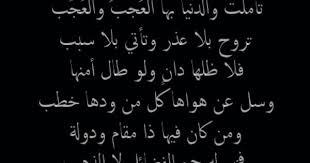 تأملت والدنيا بها العَجبُ والعَجَب
تروح بلا عذر وتأتي بلا سبب
فلا ظلها دانٍ ولو طال أمنها
وسل عن هواها كل من ودها خطب
ومن كان فيها ذا مقام ودولة